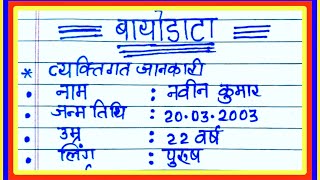 बायोडाटा
* व्यक्तिगत जानकारी
• नाम : नवीन कुमार
• जन्म तिथि : 20.03.2003
• उम्र : 22 वर्ष
• लिंग : पुरुष